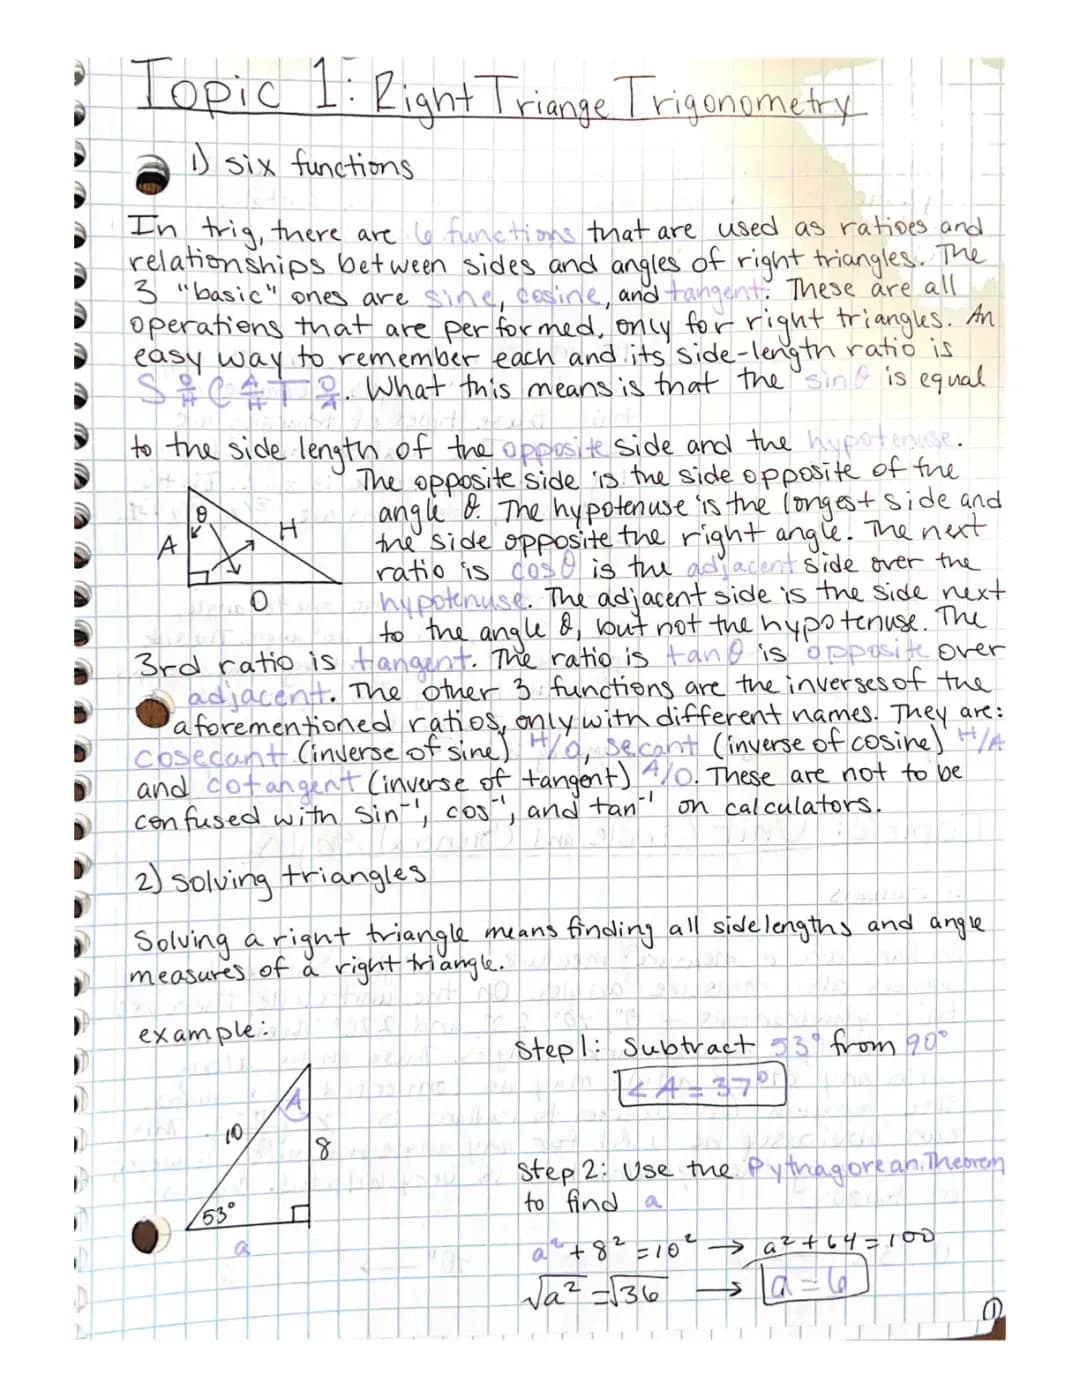 Topic 1: Right Triange Trigonometry
1) six functions
In trig, there are 6 functions that are used as ratioes and
relationships between sides and angles of right triangles. The
3 "basic" ones are sine, cosine, and tangent. These are all
operations that are performed, only for right triangles. An
easy way to remember each and its side-length ratio is
S O/H C A/H T O/A. What this means is that the sinθ is equal
to the side length of the opposite side and the hypotenuse.
The opposite side is the side opposite of the
angle θ. The hypotenuse is the longest side and
the side opposite the right angle. The next
ratio is cosθ is the adjacent side over the
hypotenuse. The adjacent side is the side next
to the angle θ, but not the hypotenuse. The
θ
A
H
O
3rd ratio is tangent. The ratio is tanθ is opposite over
adjacent. The other 3 functions are the inverses of the
aforementioned ratios, only with different names. They are:
cosecant (inverse of sine) H/O, secant (inverse of cosine) H/A
and cotangent (inverse of tangent) A/O. These are not to be
confused with sin⁻¹, cos⁻¹, and tan⁻¹ on calculators.
2) solving triangles
Solving a right triangle means finding all sidelengths and angle
measures of a right triangle.
example:
A
10
8
53°
a
Step1: Subtract 53° from 90°
∠A = 37°
Step 2: Use the Pythagorean Theorem
to find a
a² + 8² = 10² → a² + 64 = 100
√a² = √36 → a = 6
1